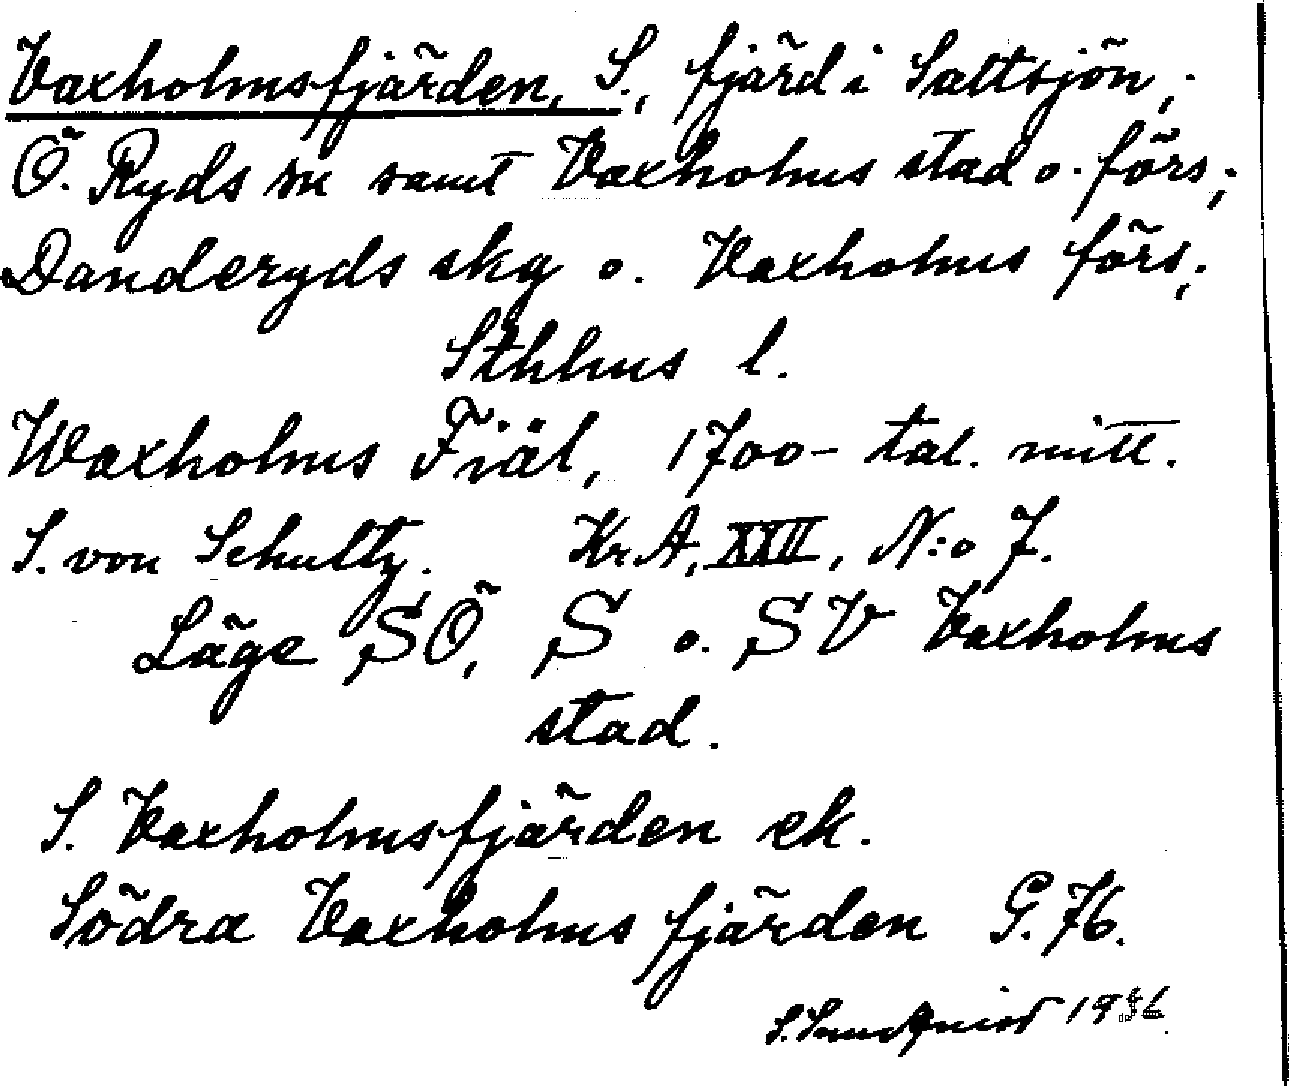 Vaxholmsfjärden, S., fjärd i Saltsjön,
Ö. Ryds sn samt Vaxholms stad o. förs.;
Danderyds skg o. Vaxholms förs.;
Sthlms l.
Waxholms Fiäl, 1700-tal. mitt.
S. von Schultz. Kr.A, XXII, N:o 7.
Läge SÖ, S o. SV Vaxholms
stad.
S. Vaxholmsfjärden ek.
Södra Vaxholmsfjärden G. 76.
S.